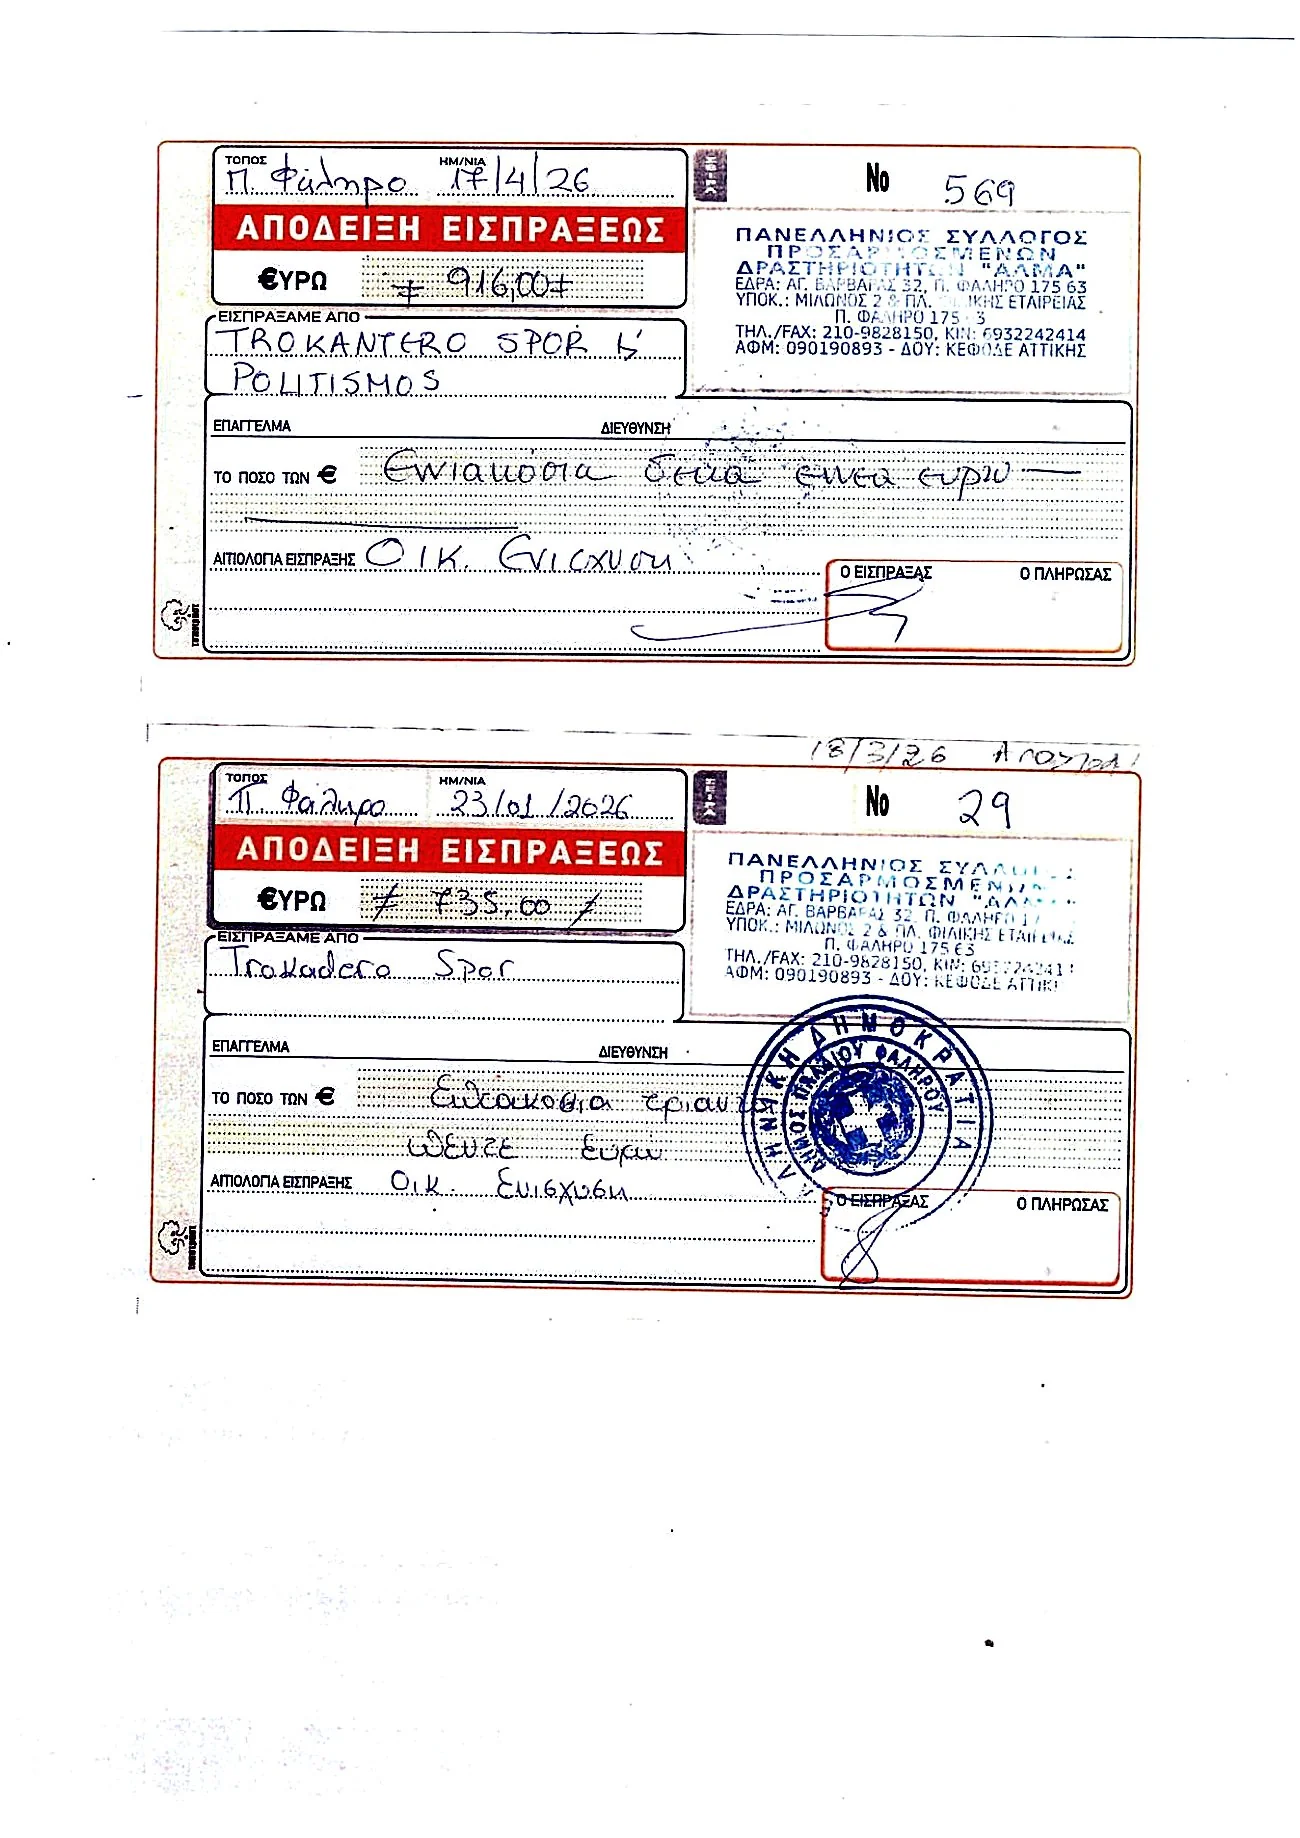 ΤΟΠΟΣ ΗΜ/ΝΙΑ
Π. Φάληρο 17/4/26
Νο 569
ΑΠΟΔΕΙΞΗ ΕΙΣΠΡΑΞΕΩΣ
€ΥΡΩ 916,00
ΠΑΝΕΛΛΗΝΙΟΣ ΣΥΛΛΟΓΟΣ
ΠΡΟΣΑΡΜΟΣΜΕΝΩΝ
ΔΡΑΣΤΗΡΙΟΤΗΤΩΝ "ΑΛΜΑ"
ΕΔΡΑ: ΑΓ. ΒΑΡΒΑΡΑΣ 32, Π. ΦΑΛΗΡΟ 175 63
ΥΠΟΚ.: ΜΙΛΩΝΟΣ 2 & ΠΛ. ΙΚΗΣ ΕΤΑΙΡΕΙΑΣ
Π. ΦΑΛΗΡΟ 175 3
ΤΗΛ./FAX: 210-9828150, ΚΙΝ: 6932242414
ΑΦΜ: 090190893 - ΔΟΥ: ΚΕΦΟΔΕ ΑΤΤΙΚΗΣ
ΕΙΣΠΡΑΞΑΜΕ ΑΠΟ
TROKANTERO SPOR
POLITISMOS
ΕΠΑΓΓΕΛΜΑ ΔΙΕΥΘΥΝΣΗ
ΤΟ ΠΟΣΟ ΤΩΝ € Εννιακόσια δεκα εννεα ευρω
ΑΙΤΙΟΛΟΓΙΑ ΕΙΣΠΡΑΞΗΣ Οικ. Ενίσχυση
Ο ΕΙΣΠΡΑΞΑΣ Ο ΠΛΗΡΩΣΑΣ
18/3/26
ΤΟΠΟΣ ΗΜ/ΝΙΑ
Π. Φάληρο 23/01/2026
Νο 29
ΑΠΟΔΕΙΞΗ ΕΙΣΠΡΑΞΕΩΣ
€ΥΡΩ 735,00
ΠΑΝΕΛΛΗΝΙΟΣ ΣΥΛΛΟΓ
ΠΡΟΣΑΡΜΟΣΜΕΝΩΝ
ΔΡΑΣΤΗΡΙΟΤΗΤΩΝ "ΑΛΜ
ΕΔΡΑ: ΑΓ. ΒΑΡΒΑΡΑΣ 32, Π. ΦΑΛΗΡΟ 17
ΥΠΟΚ.: ΜΙΛΩΝΟΣ 2 & ΠΛ. ΦΙΛΙΚΗΣ ΕΤΑΙΡΕΙΑΣ
Π. ΦΑΛΗΡΟ 175 63
ΤΗΛ./FAX: 210-9828150, ΚΙΝ: 693224241
ΑΦΜ: 090190893 - ΔΟΥ: ΚΕΦΟΔΕ ΑΤΤΙΚ
ΕΙΣΠΡΑΞΑΜΕ ΑΠΟ
Trokadero Spor
ΕΠΑΓΓΕΛΜΑ ΔΙΕΥΘΥΝΣΗ
ΤΟ ΠΟΣΟ ΤΩΝ € Επτακόσια τριαντα
πέντε ευρώ
ΑΙΤΙΟΛΟΓΙΑ ΕΙΣΠΡΑΞΗΣ Οικ. Ενίσχυση
ΕΛΛΗΝΙΚΗ ΔΗΜΟΚΡΑΤΙΑ
ΔΗΜΟΣ ΠΑΛΑΙΟΥ ΦΑΛΗΡΟΥ
Ο ΕΙΣΠΡΑΞΑΣ Ο ΠΛΗΡΩΣΑΣ